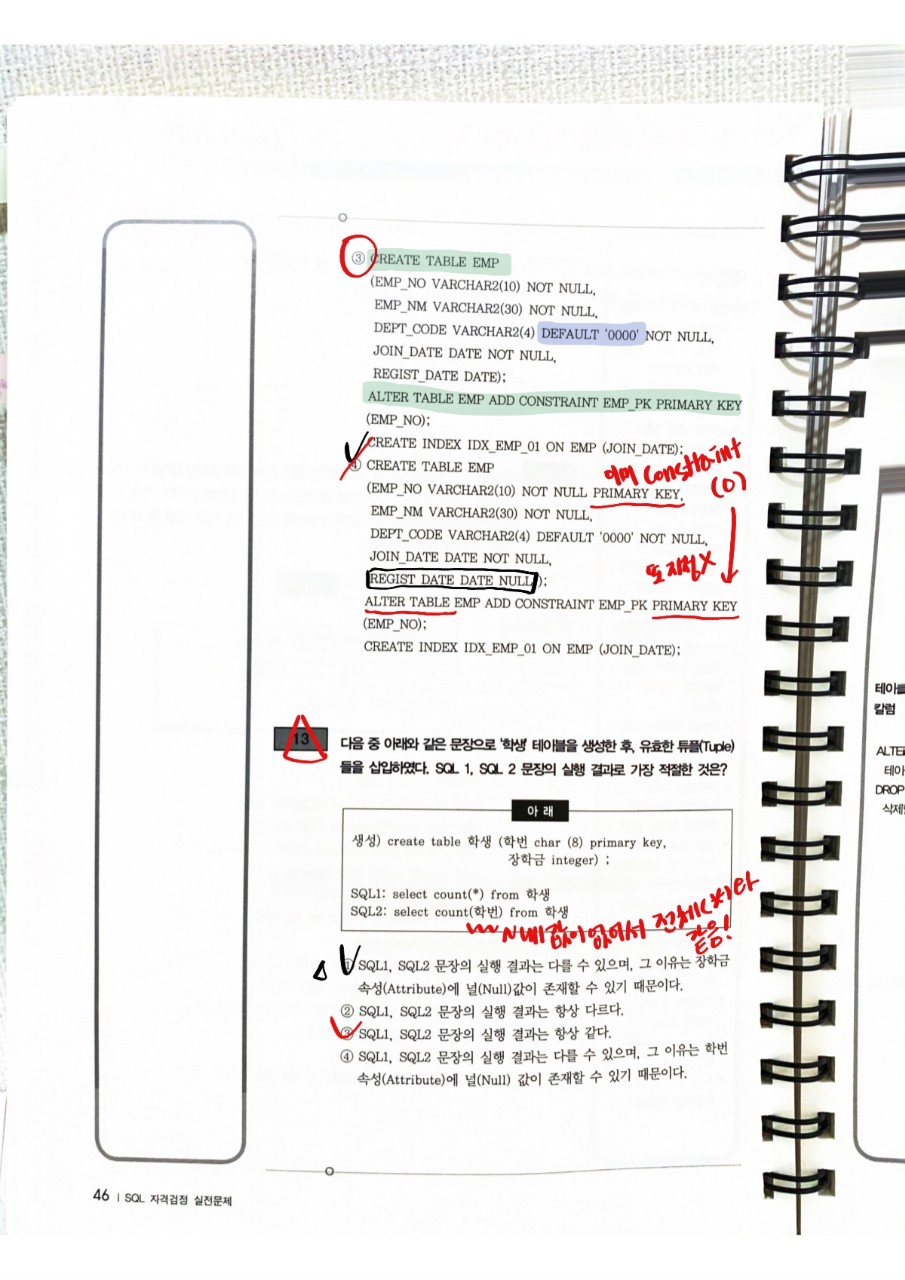 ③ CREATE TABLE EMP
(EMP_NO VARCHAR2(10) NOT NULL,
EMP_NM VARCHAR2(30) NOT NULL,
DEPT_CODE VARCHAR2(4) DEFAULT '0000' NOT NULL,
JOIN_DATE DATE NOT NULL,
REGIST_DATE DATE);
ALTER TABLE EMP ADD CONSTRAINT EMP_PK PRIMARY KEY
(EMP_NO);
CREATE INDEX IDX_EMP_01 ON EMP (JOIN_DATE);
이미 constraint
(O)
④ CREATE TABLE EMP
(EMP_NO VARCHAR2(10) NOT NULL PRIMARY KEY,
EMP_NM VARCHAR2(30) NOT NULL,
DEPT_CODE VARCHAR2(4) DEFAULT '0000' NOT NULL,
JOIN_DATE DATE NOT NULL,
또 지정X
REGIST_DATE DATE NULL);
ALTER TABLE EMP ADD CONSTRAINT EMP_PK PRIMARY KEY
(EMP_NO);
CREATE INDEX IDX_EMP_01 ON EMP (JOIN_DATE);
13 다음 중 아래와 같은 문장으로 '학생' 테이블을 생성한 후, 유효한 튜플(Tuple)
들을 삽입하였다. SQL 1, SQL 2 문장의 실행 결과로 가장 적절한 것은?
아 래
생성) create table 학생 (학번 char (8) primary key,
장학금 integer) ;
SQL1: select count(*) from 학생
SQL2: select count(학번) from 학생
값이 없어서 전체(*)랑
같음!
① SQL1, SQL2 문장의 실행 결과는 다를 수 있으며, 그 이유는 장학금
속성(Attribute)에 널(Null)값이 존재할 수 있기 때문이다.
② SQL1, SQL2 문장의 실행 결과는 항상 다르다.
③ SQL1, SQL2 문장의 실행 결과는 항상 같다.
④ SQL1, SQL2 문장의 실행 결과는 다를 수 있으며, 그 이유는 학번
속성(Attribute)에 널(Null) 값이 존재할 수 있기 때문이다.
46 | SQL 자격검정 실전문제
칼럼
ALTE
테이
DROP